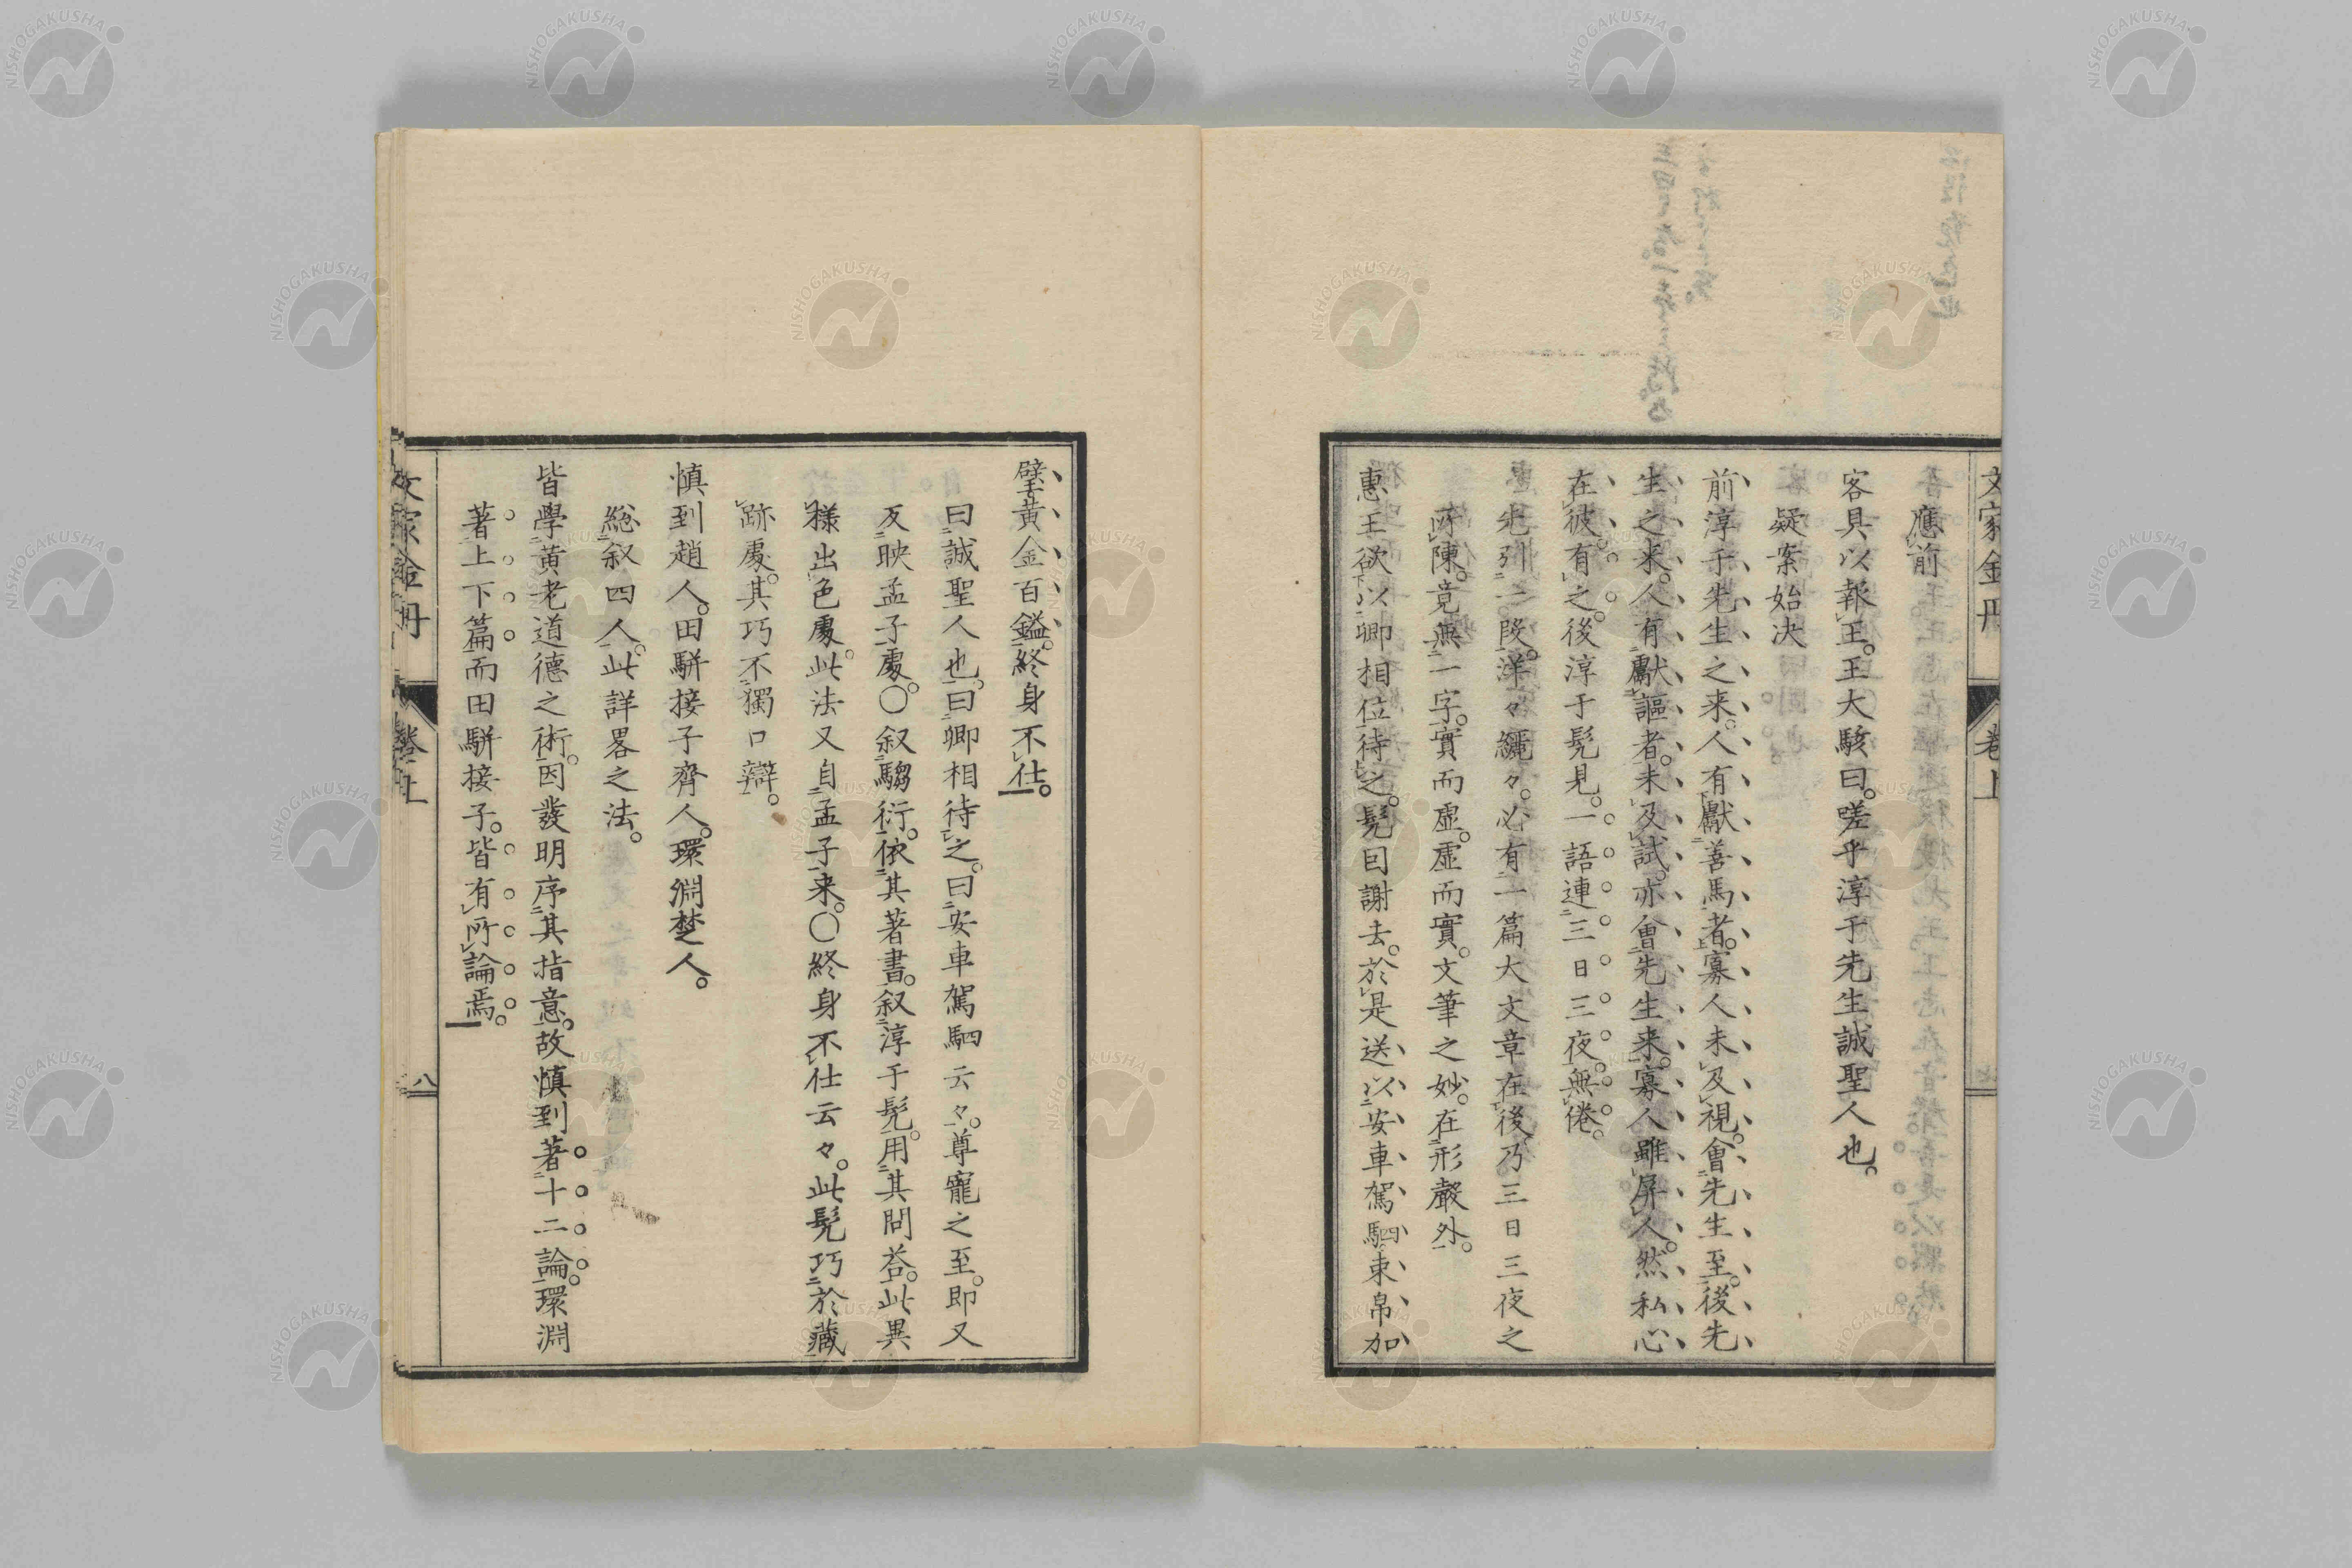 文家金丹　卷上
應前
客具以報王。王大駭曰。嗟乎淳于先生誠聖人也。
疑案始決
前淳于先生之来。人有獻善馬者。寡人未及視。會先生至。後先
生之来。人有獻謳者。未及試。亦會先生来。寡人雖屏人。然私心
在彼有之。後淳于髡見。一語連三日三夜。無倦。
先列二段。洋々纚々。必有一篇大文章在後。乃三日三夜之
所陳。竟無一字。實而虛。虛而實。文筆之妙。在形聲外。
惠王欲以卿相位待之。髡因謝去。於是送以安車駕駟束帛加
璧黃金百鎰。終身不仕。
曰誠聖人也。曰卿相待之。曰安車駕駟云々。尊寵之至。即又
反映孟子處。〇叙騶衍。依其著書。叙淳于髡。用其問荅。此異
樣出色處。此法又自孟子来。〇終身不仕云々。此髡巧於藏
跡處。其巧不獨口辯。
慎到趙人。田駢接子齊人。環淵楚人。
総叙四人。此詳畧之法。
皆學黃老道德之術。因發明序其指意。故慎到著十二論。環淵
著上下篇。而田駢接子。皆有所論焉。
文家金丹　卷上　八
NISHOGAKUSHA